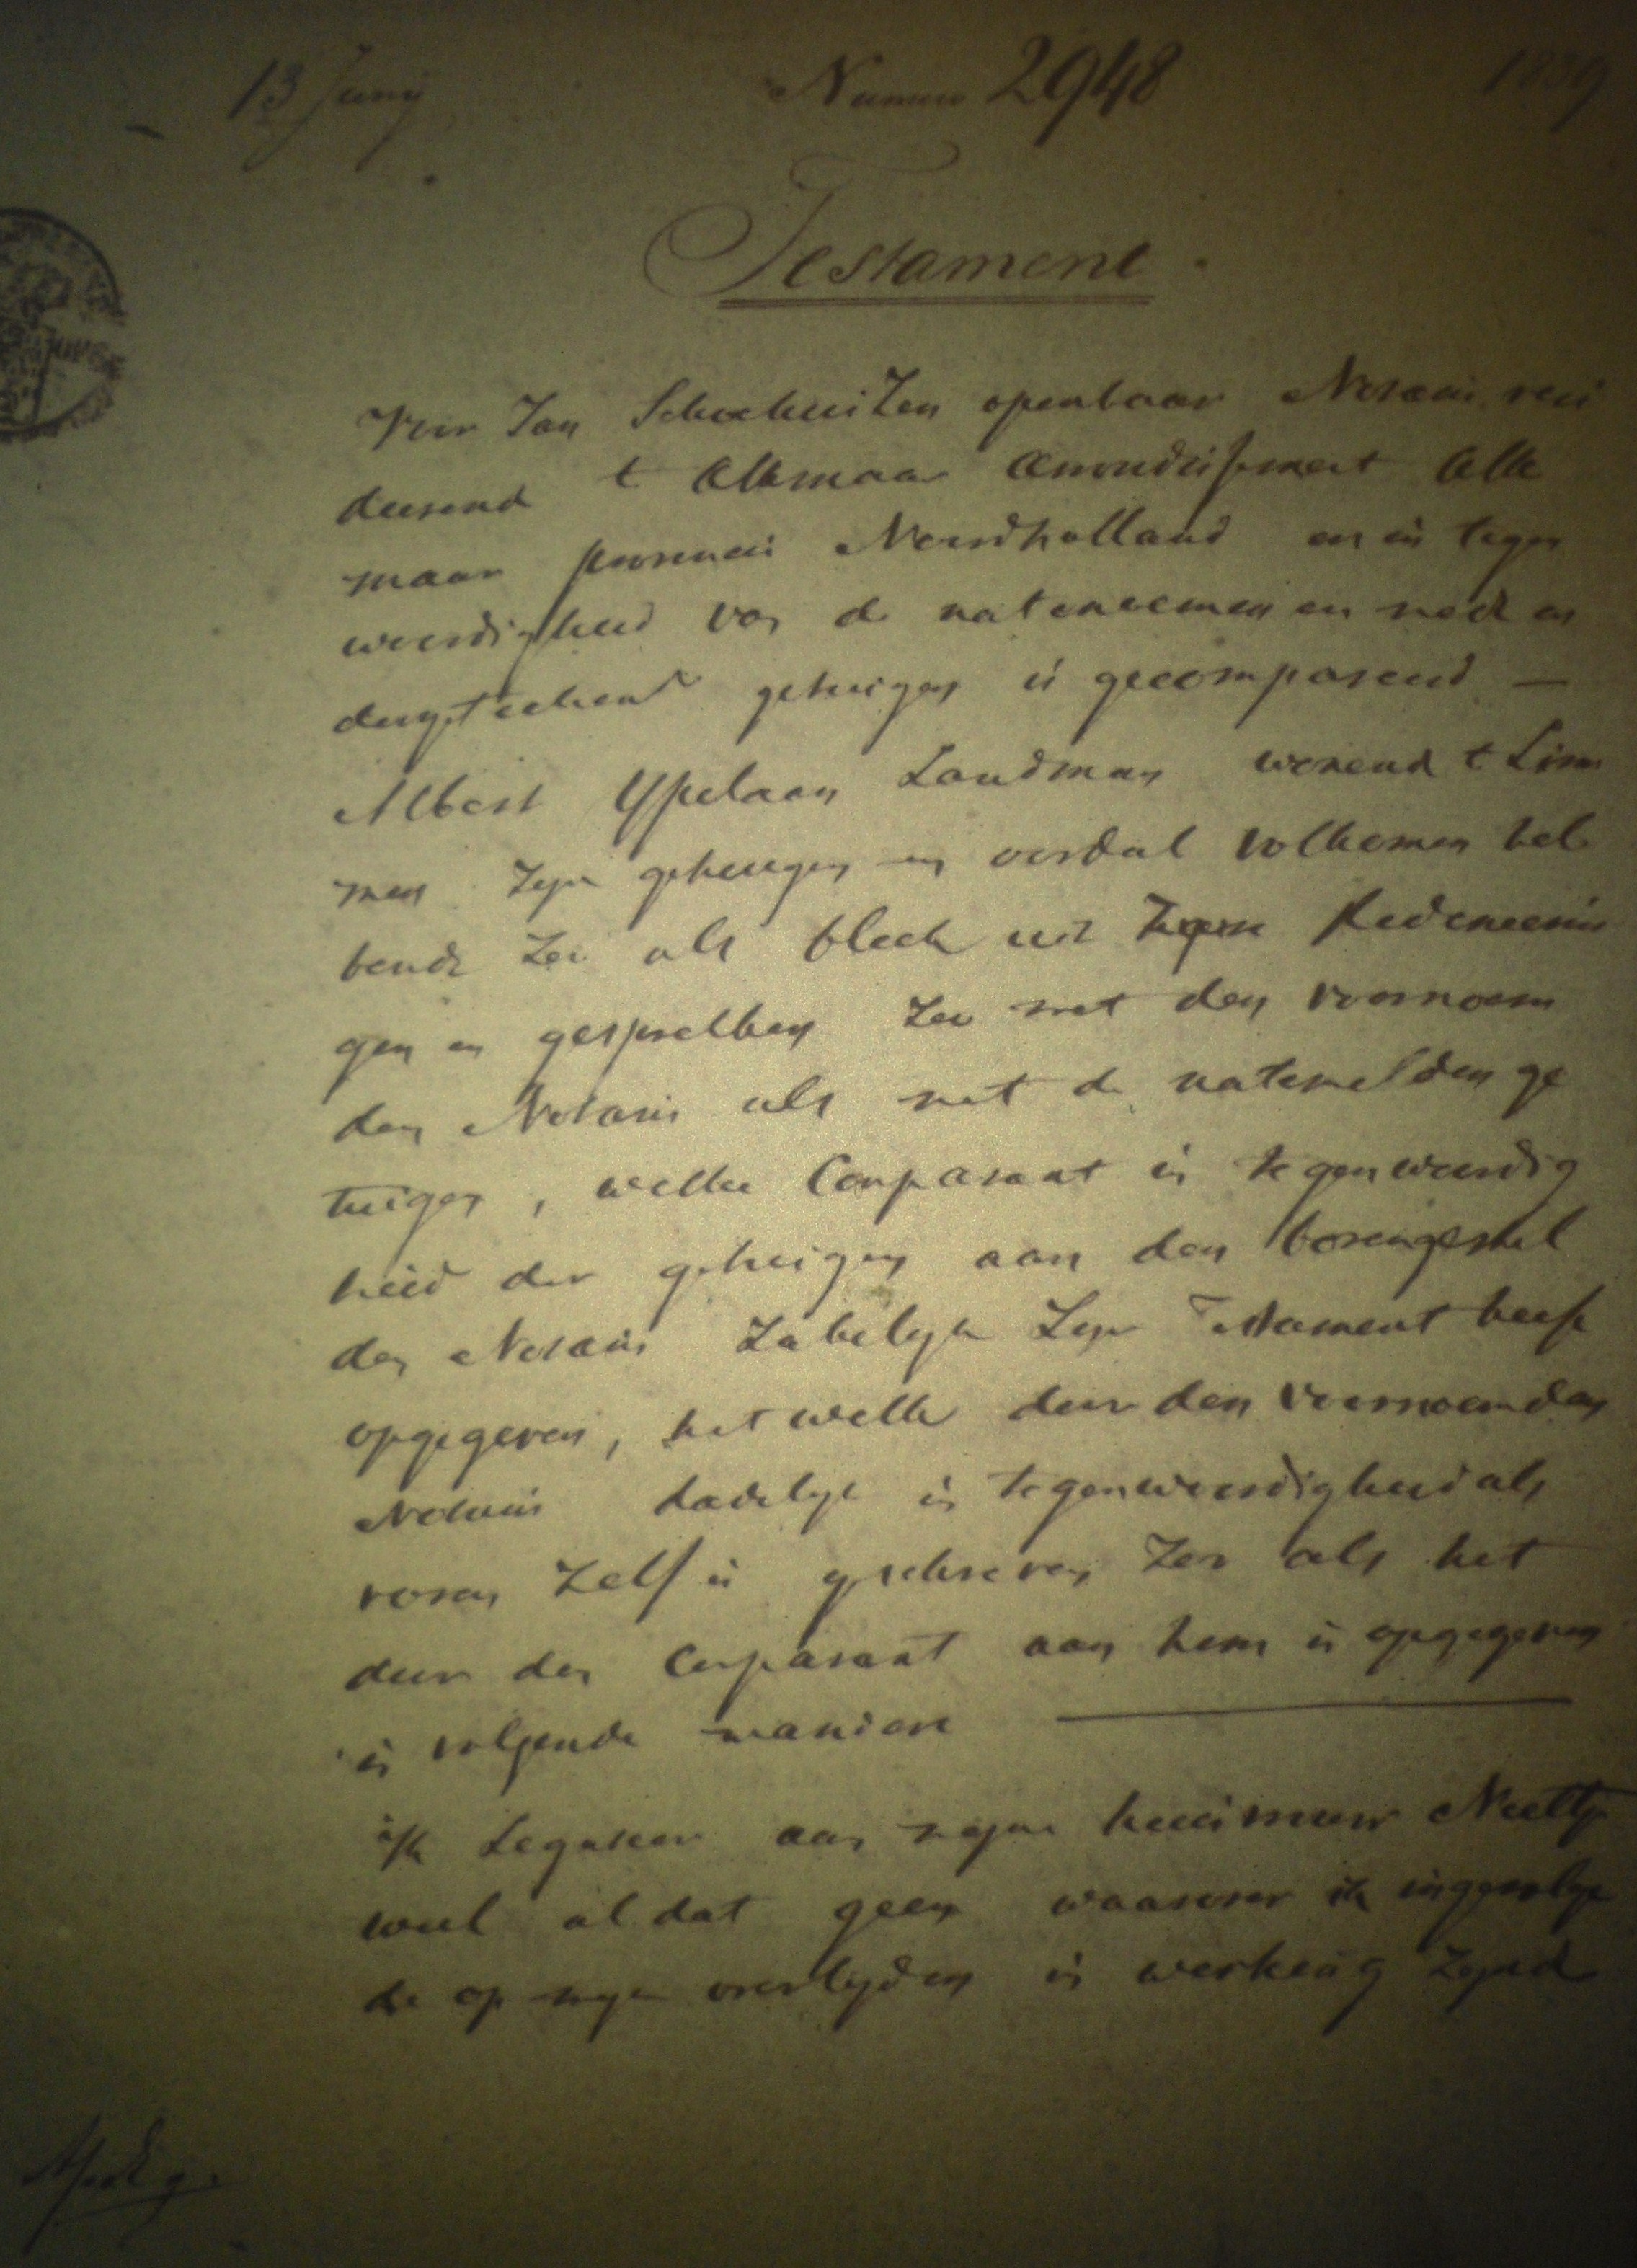 13 Juny Numero 2948 1839
Testament.
Voor Jan Schoehuizen openbaar Notaris resi
deerend t Alkmaar Arrondissement Alk
maar provincie Noordholland en in tegen
woordigheid van de natenoemen en med on
dergeteekend getuigen is gecompareerd —
Albert Ypelaan Landman wonend t Lim
men Zyn geheugen en oordeel volkomen heb
bende Zoo als bleek uit Zyne Redeneerin
gen en gesprekken Zoo met den voornoem
den Notaris als met de natemelden ge
tuigen, welke Comparant in tegenwoordig
heid der getuigen aan den bovengemel
den Notaris Zakelyk Zyn Testament heeft
opgegeven, het welk door den voornoemden
Notaris dadelyk in tegenwoordigheid als
voren Zelf is geschreven Zoo als het
door den Comparant aan hem is opgegeven
in volgende manier
ik Legateer aan myne huisvrouw Neeltje
al dat geen waarover ik ingevolge
de op myn overlyden in werking Zynd